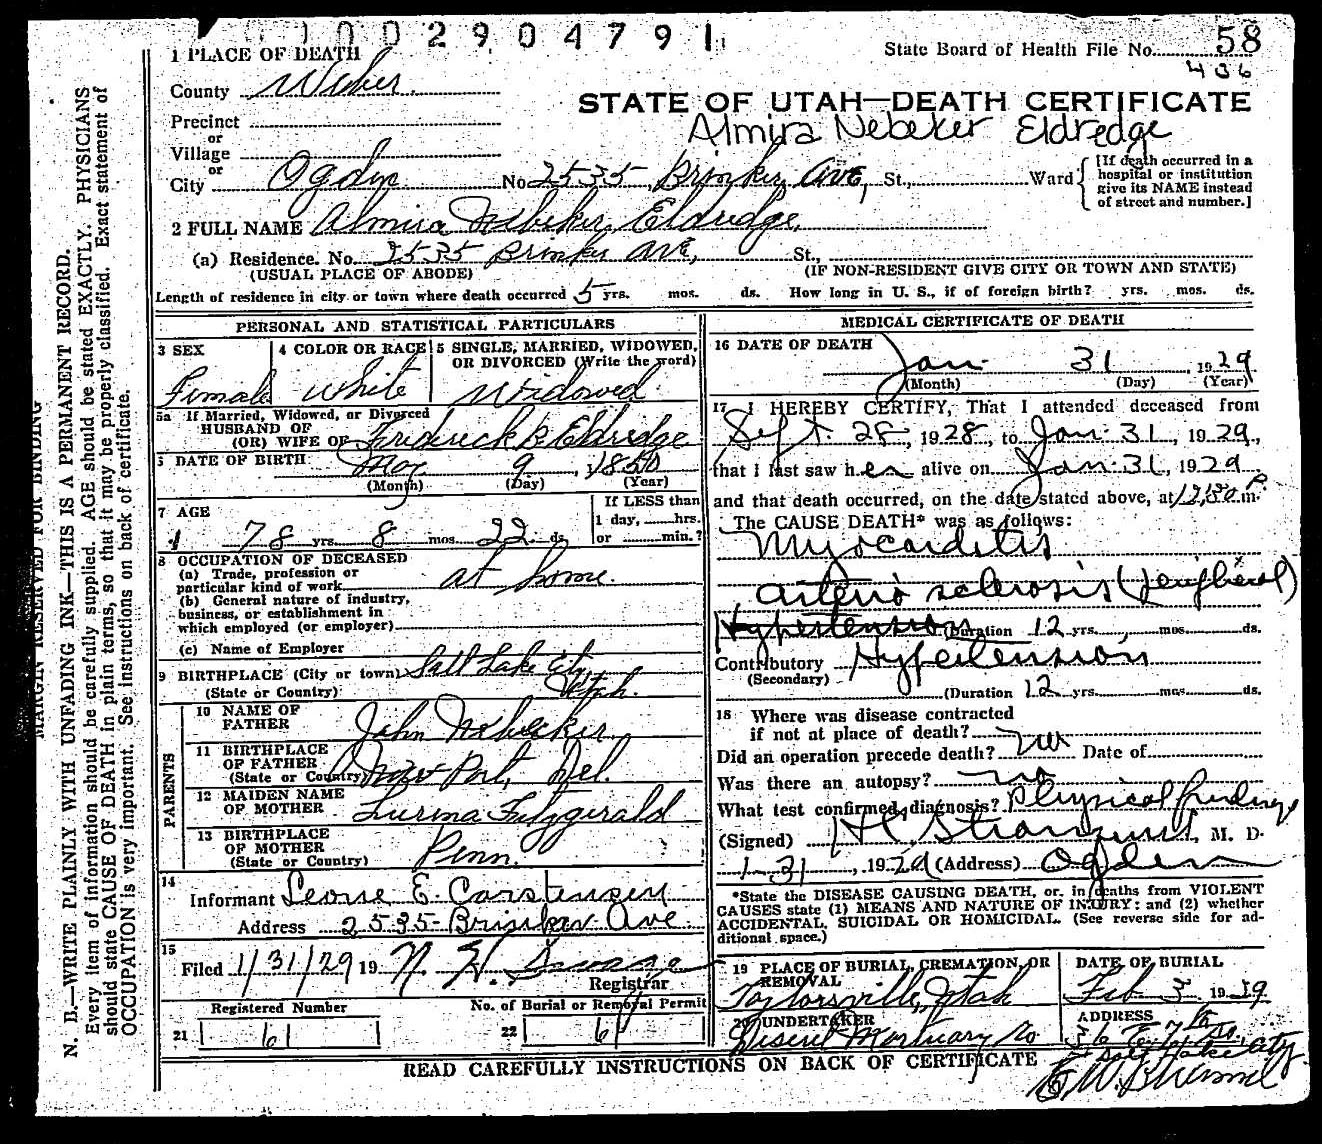 1002904791
State Board of Health File No. 58
436
1 PLACE OF DEATH
County Weber
STATE OF UTAH—DEATH CERTIFICATE
Almira Nebeker Eldredge
Precinct
or
Village
or
City Ogden No 2535 Brinker Ave, St., Ward
[If death occurred in a
hospital or institution
give its NAME instead
of street and number.]
2 FULL NAME Almira Nebeker Eldredge,
(a) Residence. No. 2535 Brinker Ave, St.,
(USUAL PLACE OF ABODE) (IF NON-RESIDENT GIVE CITY OR TOWN AND STATE)
Length of residence in city or town where death occurred 5 yrs. mos. ds. How long in U. S., if of foreign birth? yrs. mos. ds.
PERSONAL AND STATISTICAL PARTICULARS
3 SEX 4 COLOR OR RACE 5 SINGLE, MARRIED, WIDOWED,
OR DIVORCED (Write the word)
Female White Widowed
5a If Married, Widowed, or Divorced
HUSBAND OF
(OR) WIFE OF Frederick B Eldridge
DATE OF BIRTH May 9, 1850
(Month) (Day) (Year)
7 AGE
If LESS than
1 day, hrs.
or min.?
78 yrs. 8 mos. 22 ds.
8 OCCUPATION OF DECEASED
(a) Trade, profession or
particular kind of work at home.
(b) General nature of industry,
business, or establishment in
which employed (or employer)
(c) Name of Employer
9 BIRTHPLACE (City or town) Salt Lake City
(State or Country) Utah.
PARENTS
10 NAME OF
FATHER John Nebecker
11 BIRTHPLACE
OF FATHER
(State or Country) New Port, Del.
12 MAIDEN NAME
OF MOTHER Lurena Fitzgerald
13 BIRTHPLACE
OF MOTHER
(State or Country) Penn.
14
Informant Leone E. Carstensen
Address 2535 Brinker Ave
15
Filed 1/31/29 19
Registrar
Registered Number No. of Burial or Removal Permit
21 61 22 61
MEDICAL CERTIFICATE OF DEATH
16 DATE OF DEATH
Jan 31, 1929
(Month) (Day) (Year)
17 I HEREBY CERTIFY, That I attended deceased from
Sept. 28, 1928, to Jan. 31, 1929,
that I last saw her alive on Jan. 31, 1929
and that death occurred, on the date stated above, at 12:30 P.m.
The CAUSE DEATH* was as follows:
Myocarditis
Arterio sclerosis (peripheral)
Hypertension (Duration 12 yrs. mos. ds.
Contributory Hypertension
(Secondary)
(Duration 12 yrs. mos. ds.
18 Where was disease contracted
if not at place of death?
Did an operation precede death? no Date of
Was there an autopsy? no
What test confirmed diagnosis? Physical findings
(Signed) M. D.
1-31, 1929 (Address) Ogden
*State the DISEASE CAUSING DEATH, or, in deaths from VIOLENT
CAUSES state (1) MEANS AND NATURE OF INJURY; and (2) whether
ACCIDENTAL, SUICIDAL OR HOMICIDAL. (See reverse side for ad-
ditional space.)
19 PLACE OF BURIAL, CREMATION, OR
REMOVAL
DATE OF BURIAL
Taylorsville, Utah Feb 3 1929
20 UNDERTAKER ADDRESS
Deseret Mortuary Co 36 E. 7th So.
Salt Lake City
READ CAREFULLY INSTRUCTIONS ON BACK OF CERTIFICATE
MARGIN RESERVED FOR BINDING
N. B.—WRITE PLAINLY WITH UNFADING INK—THIS IS A PERMANENT RECORD.
Every item of information should be carefully supplied. AGE should be stated EXACTLY. PHYSICIANS
should state CAUSE OF DEATH in plain terms, so that it may be properly classified. Exact statement of
OCCUPATION is very important. See instructions on back of certificate.